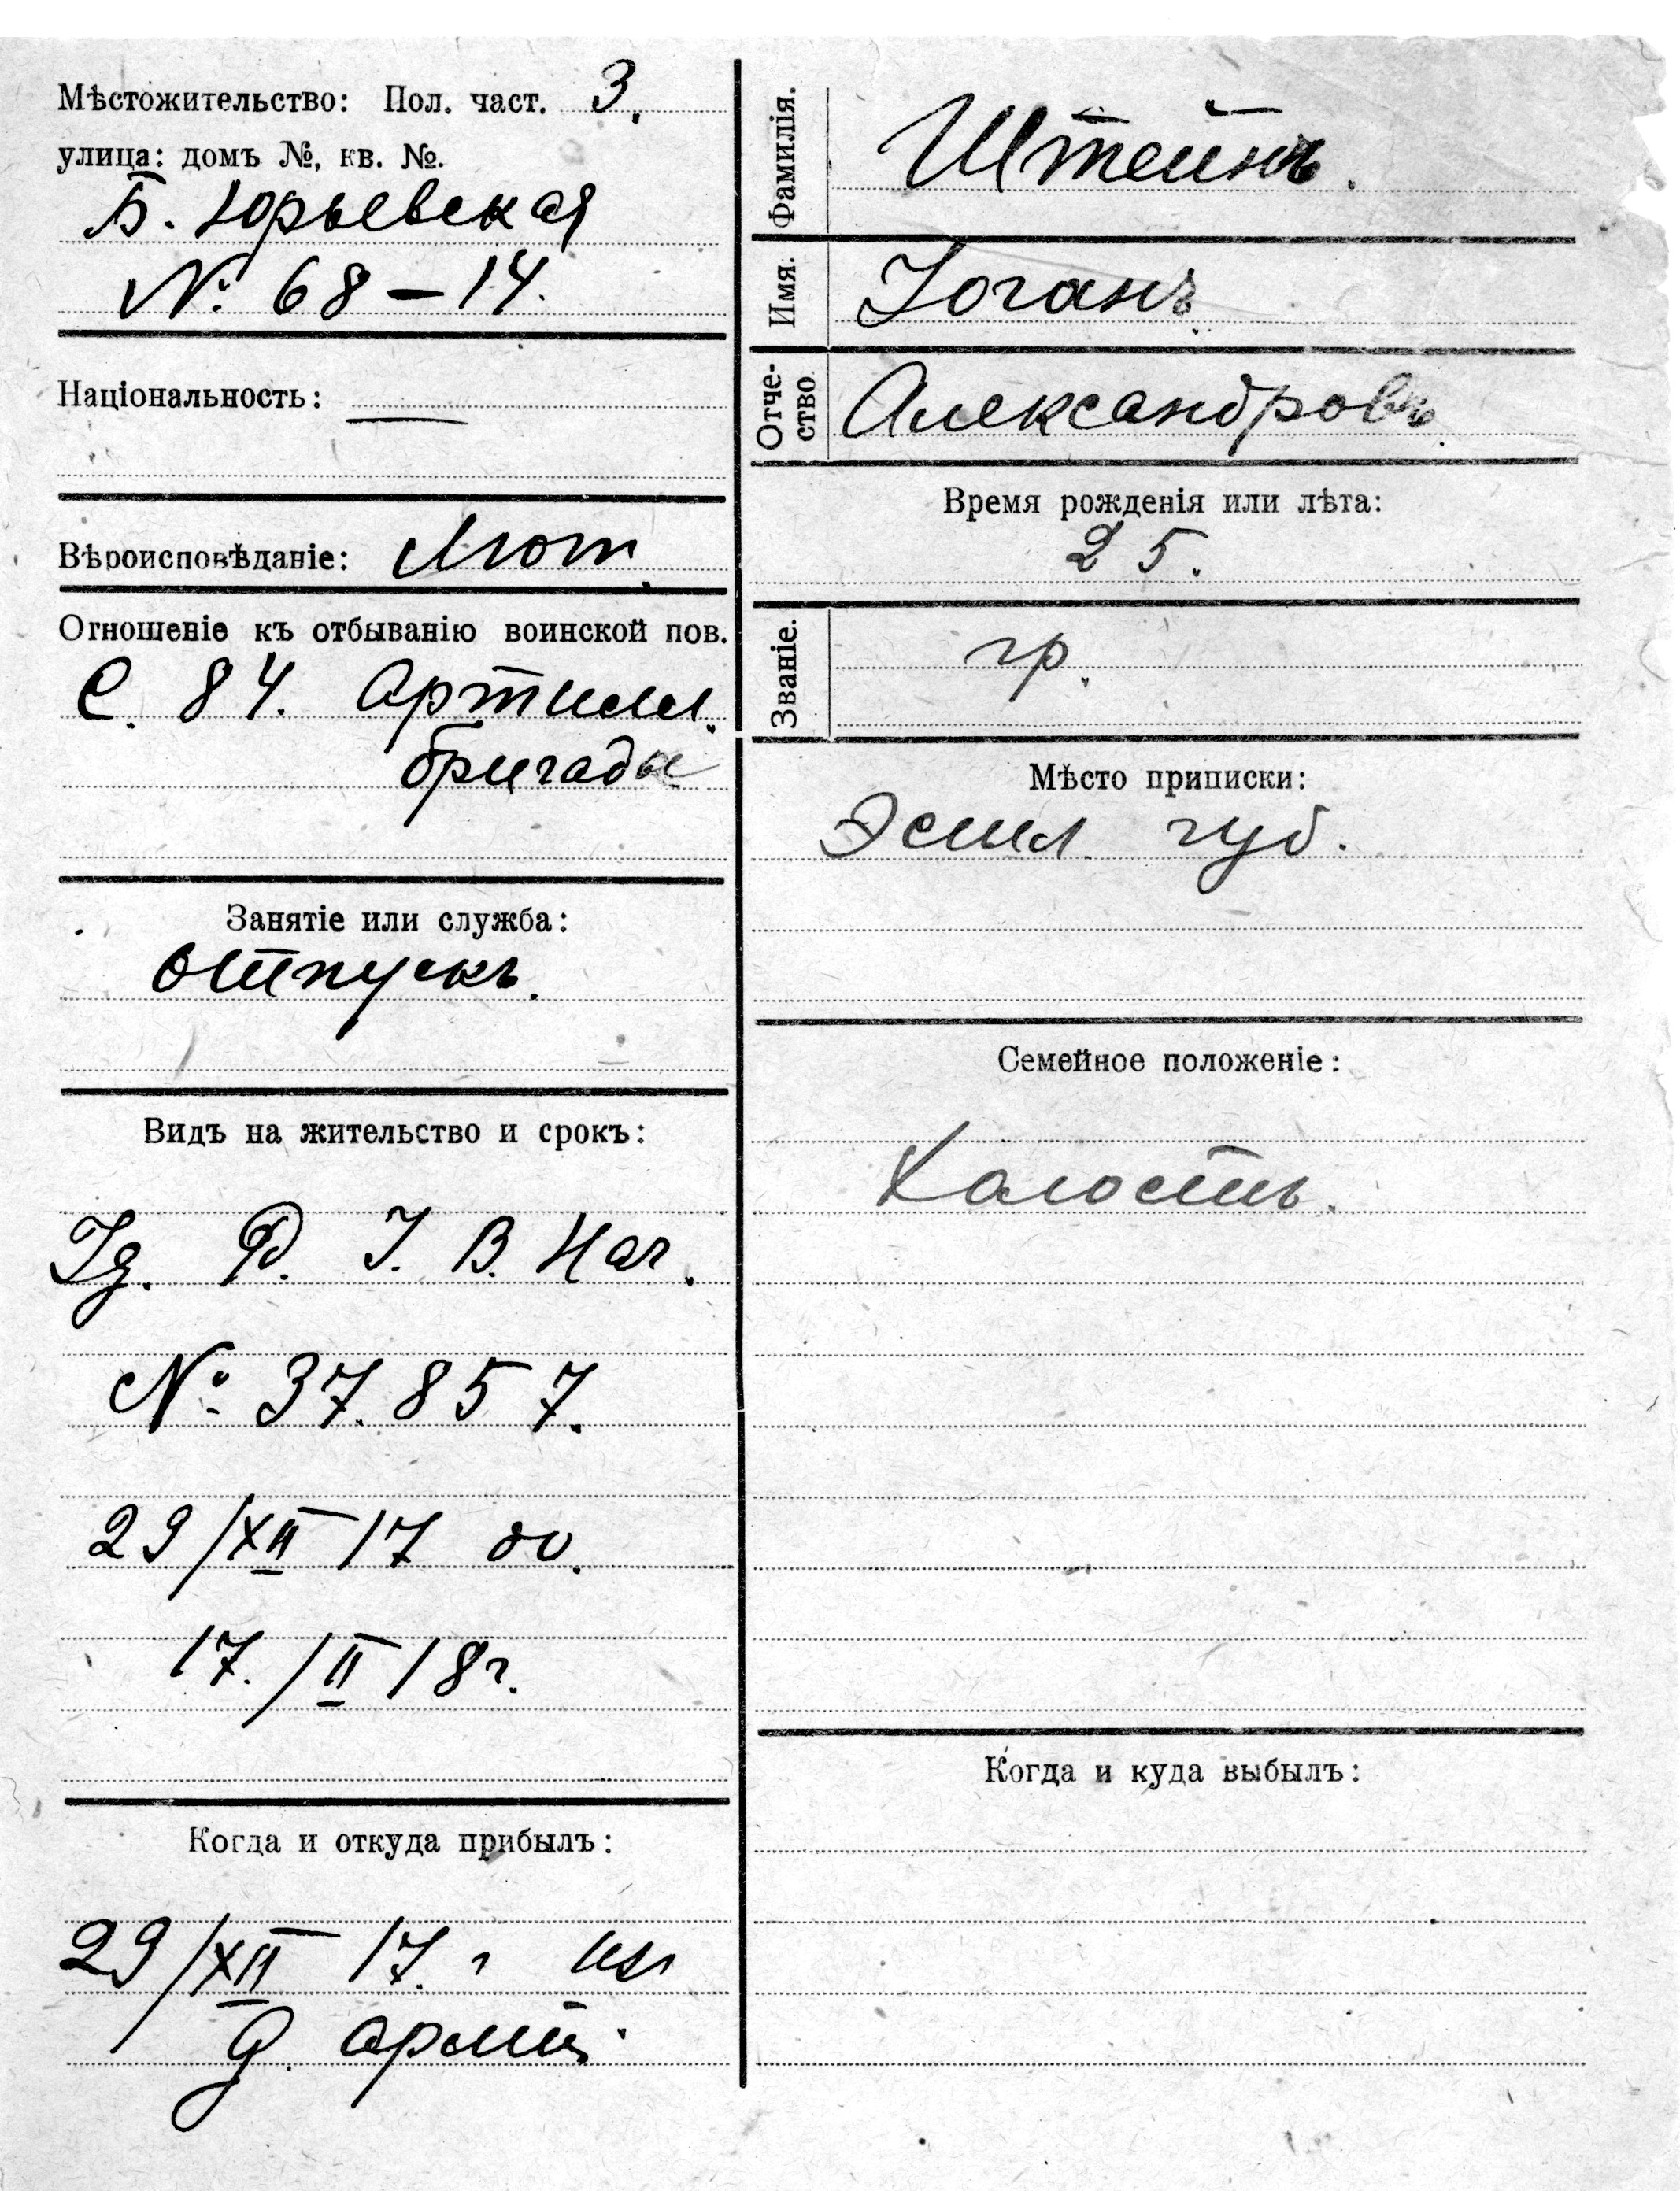 Мѣстожительство: Пол. част. 3.
улица: домъ №, кв. №.
Б. Юрьевская
№ 68 – 14.
Національность: —
Вѣроисповѣданіе: Лют.
Отношеніе къ отбыванію воинской пов.
С. 84. Артилл.
бригады
Занятіе или служба:
Отпускъ.
Видъ на жительство и срокъ:
В. Нач.
№ 37.857.
29/XII 17 до
17./II 18 г.
Когда и откуда прибылъ:
29/XII 17. г из
Д. Арміи.
Фамилія. Штейнъ.
Имя. Іоганъ
Отче-
ство. Александровъ
Время рожденія или лѣта:
25.
Званіе. гр.
Мѣсто приписки:
Эстл. губ.
Семейное положеніе:
Холостъ.
Когда и куда выбылъ: